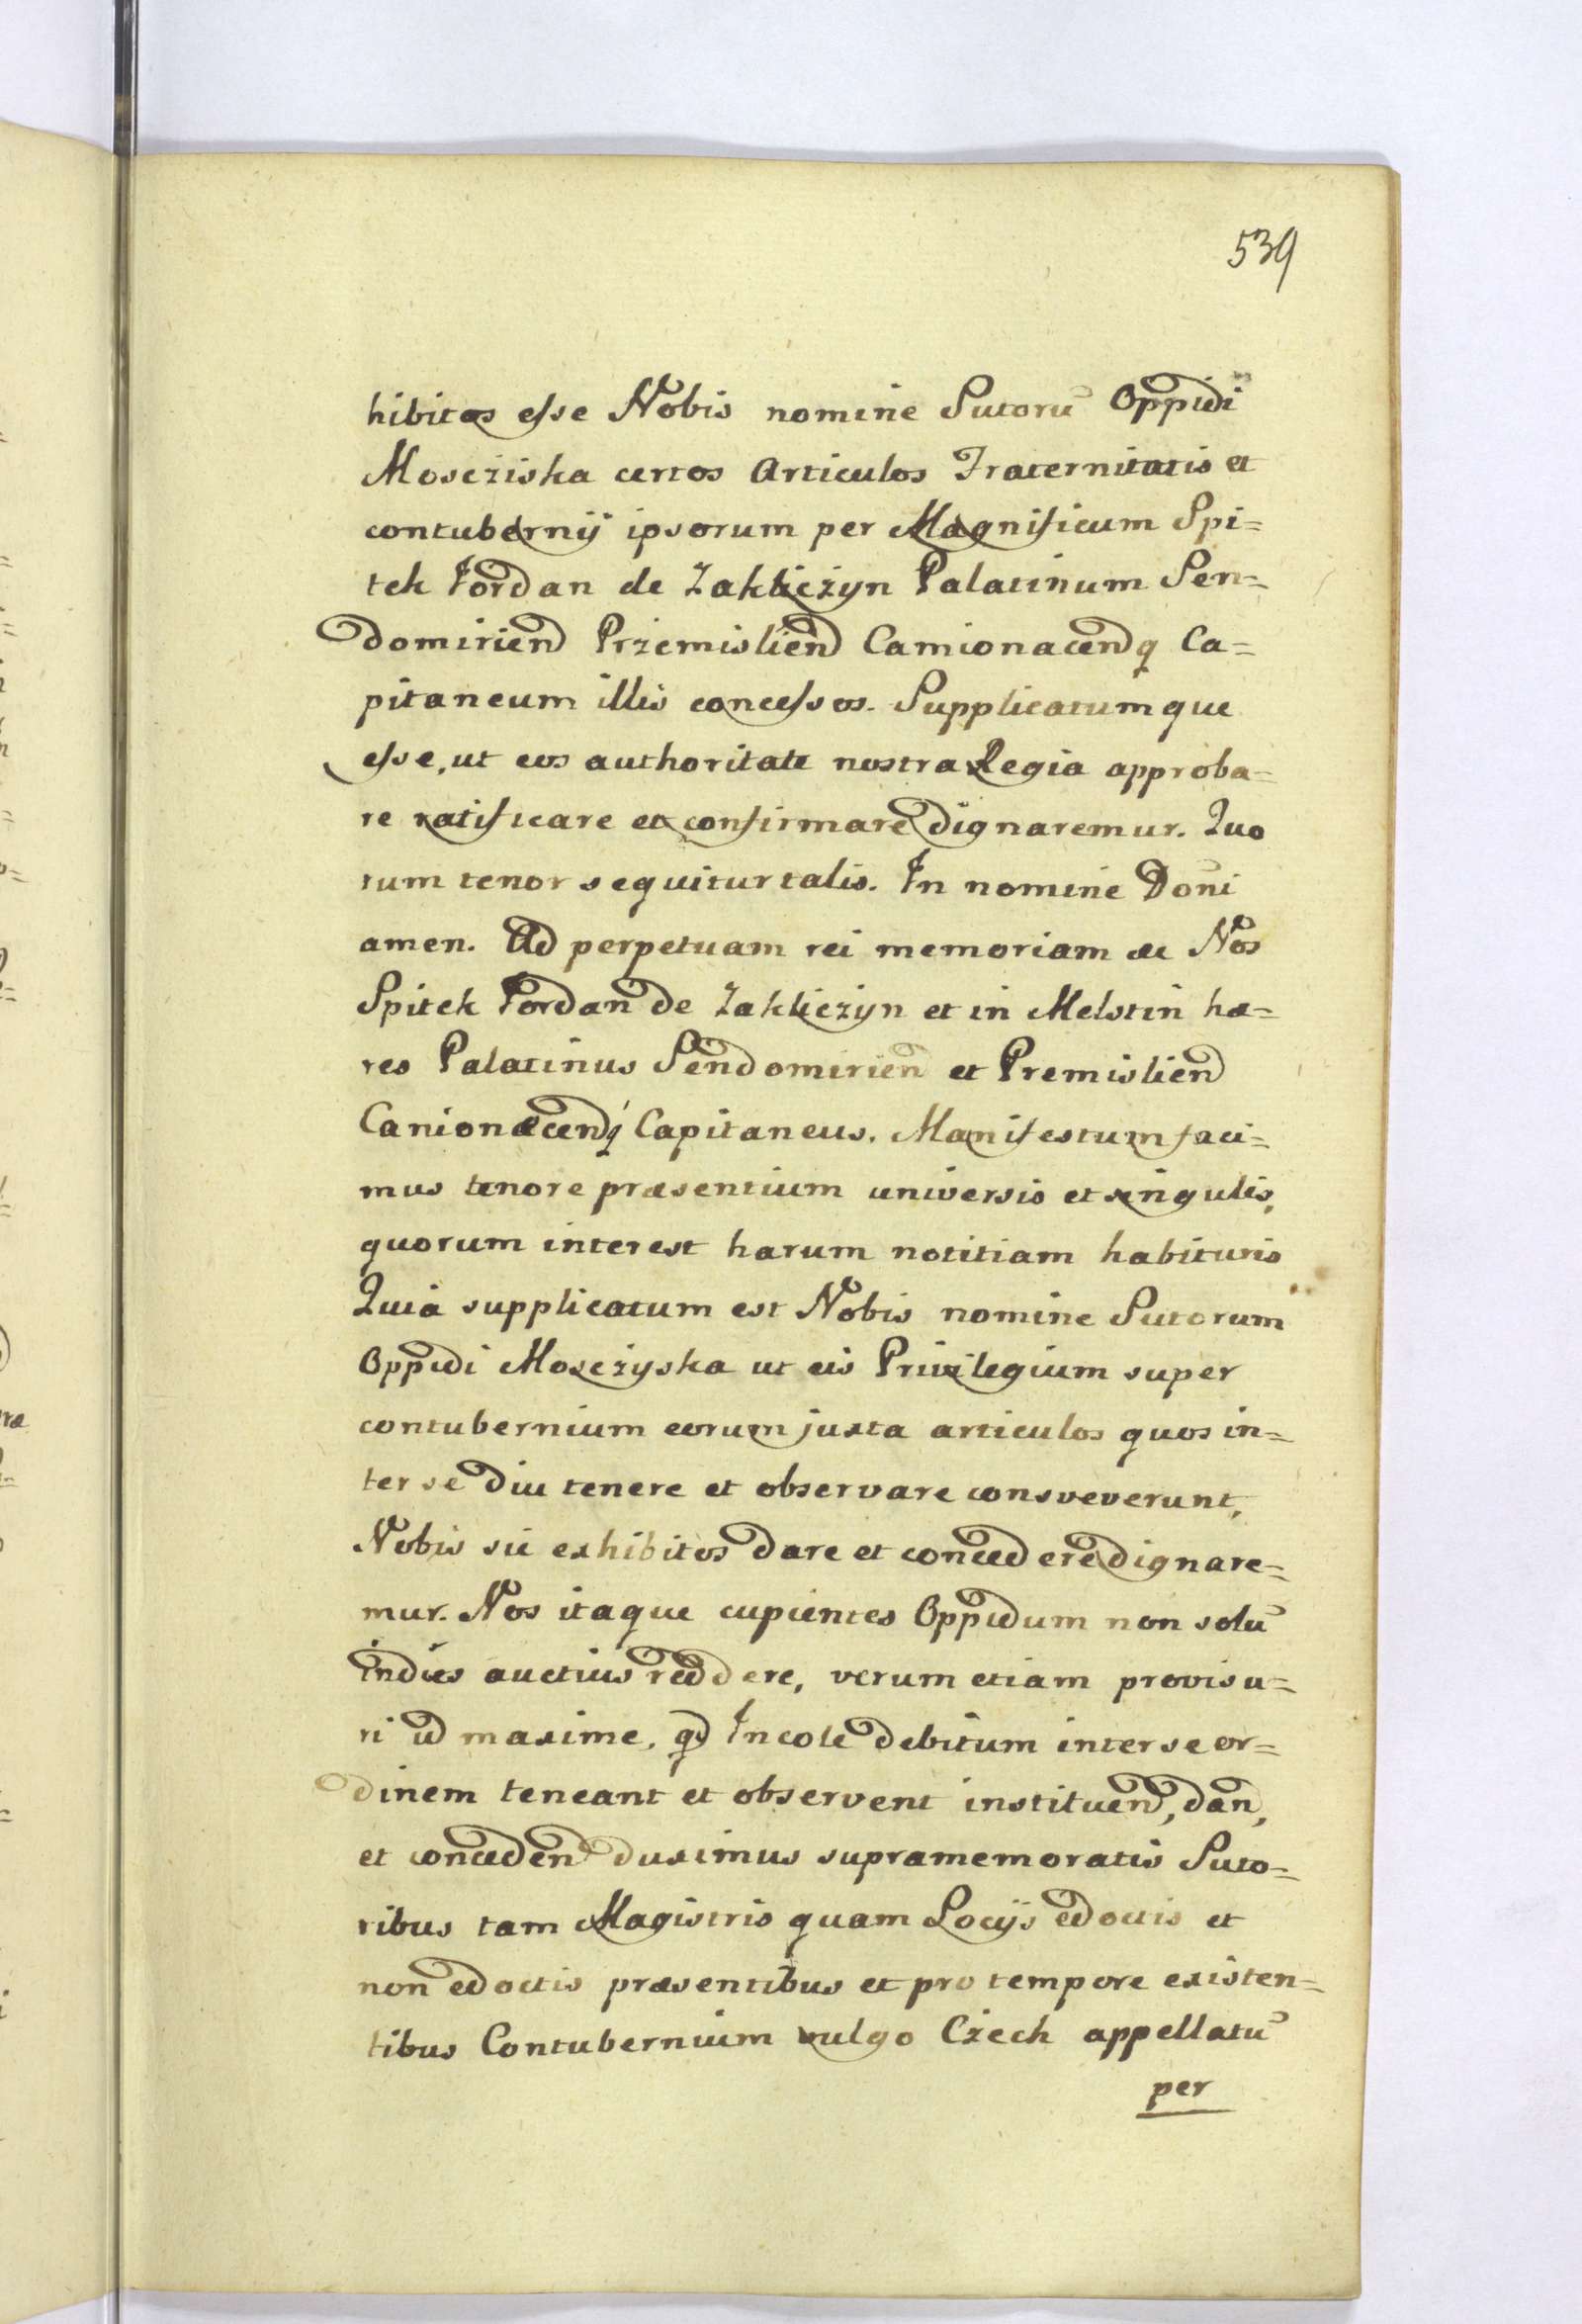 539
hibitos esse Nobis nomine Sutorū Oppidi
Mosciska certos Articulos Fraternitatis et
contubernij ipsorum per Magnificum Spi=
tek Jordan de Zakliczyn Palatinum Sen=
domirien Przemislien Camionacenq Ca=
pitaneum illis concessos. Supplicatumque
esse, ut eos authoritate nostra Regia approba=
re ratificare et confirmare dignaremur. Quo
rum tenor sequitur talis. In nomine Doni
amen. Ad perpetuam rei memoriam ae Nos
Spitek Jordan de Zakliczyn et in Melstin hæ=
res Palatinus Sendomirien et Premislien
Canionacenq Capitaneus. Manifestum faci=
mus tenore præsentium universis et singulis,
quorum interest harum notitiam habituris
Quia supplicatum est Nobis nomine Sutorum
Oppidi Mosczyska ut eis Privilegium super
contubernium eorum juxta articulos quos in=
ter se diu tenere et observare consveverunt,
Nobis sic exhibitos dare et concedere dignare=
mur. Nos itaque cupientes Oppidum non solū
indies auctius reddere, verum etiam provisu=
ri id maxime, qd Incole debitum inter se or=
dinem teneant et observent instituen, dan,
et conceden duximus supramemoratis Suto=
ribus tam Magistris quam Socijs edoctis et
non edoctis præsentibus et pro tempore existen=
tibus Contubernium vulgo Czech appellatū
per